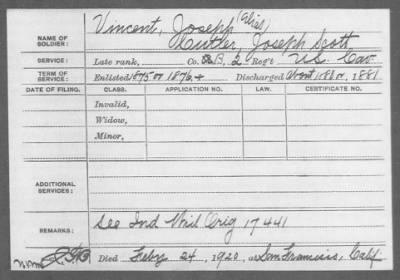 Vincent, Joseph
(Alias)
NAME OF SOLDIER: Cutler, Joseph Scott
SERVICE: Late rank, Co. B, 2 Reg't U.S. Cav.
TERM OF SERVICE: Enlisted 1875 or 1876, Discharged About 1880 or, 1881
DATE OF FILING. CLASS. APPLICATION NO. LAW. CERTIFICATE NO.
Invalid,
Widow,
Minor,
ADDITIONAL SERVICES:
REMARKS: See Ind Orig 17441
Died Feby 24, 1920, at San Francisco, Calif.